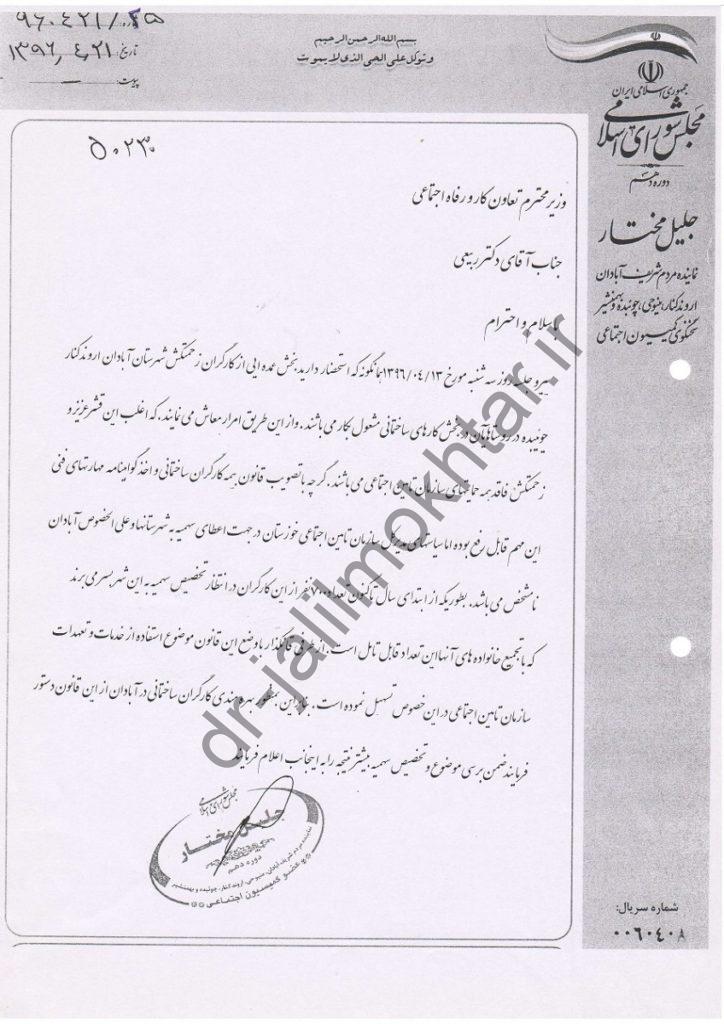 بسم الله الرحمن الرحیم
و توکل علی الحی الذی لایموت
شماره: ۹۶۰۴۲۱/۲۵
تاریخ: ۱۳۹۶,۴,۲۱
پیوست: —
۵۰۲۳
جمهوری اسلامی ایران
مجلس شورای اسلامی
دوره دهم
جلیل مختار
نماینده مردم شریف آبادان
اروندکنار، مینوحی، چوئبده و بهمنشیر
سخنگوی کمیسیون اجتماعی
وزیر محترم تعاون کار و رفاه اجتماعی
جناب آقای دکتر ربیعی
با سلام و احترام
پیرو جلسه روز سه شنبه مورخ ۱۳۹۶/۰۴/۱۳ همانگونه که استحضار دارید بخش عمده ایی از کارگران زحمتکش شهرستان آبادان اروندکنار
چوئبده در روستاهای آن در بخش کارهای ساختمانی مشغول بکار می باشند. و از این طریق امرار معاش می نمایند. که اغلب این قشر عزیز و
زحمتکش فاقد بیمه حمایتهای سازمان تامین اجتماعی می باشند. گرچه با تصویب قانون بیمه کارگران ساختمانی و اخذ گواهینامه مهارتهای فنی
این مهم قابل رفع بوده اما سیاستهای مدیرکل سازمان تامین اجتماعی خوزستان در جهت اعطای سهمیه به شهرستانها و علی الخصوص آبادان
نامشخص می باشد. بطوریکه از ابتدای سال تاکنون تعداد ۷۰۰ نفر از این کارگران در انتظار تخصیص سهمیه به این شهر بسر می برند
که با تجمیع خانواده های آنها این تعداد قابل تامل است. از طرفی قانگذار با وضع این قانون موضوع استفاده از خدمات و تعهدات
سازمان تامین اجتماعی در این خصوص تسهیل نموده است. بنابراین بمنظور بهره مندی کارگران ساختمانی در آبادان از این قانون دستور
فرمایند ضمن برسی موضوع و تخصیص سهمیه بیشتر نتیجه را به اینجانب اعلام فرمایند
مجلس شورای اسلامی
جلیل مختار
دوره دهم
نماینده مردم شریف آبادان، مینوحی، اروندکنار، چوئبده و بهمنشیر
عضو کمیسیون اجتماعی
شماره سریال:
۰۰۶۰۴۰۸
dr-jalilmokhtar.ir